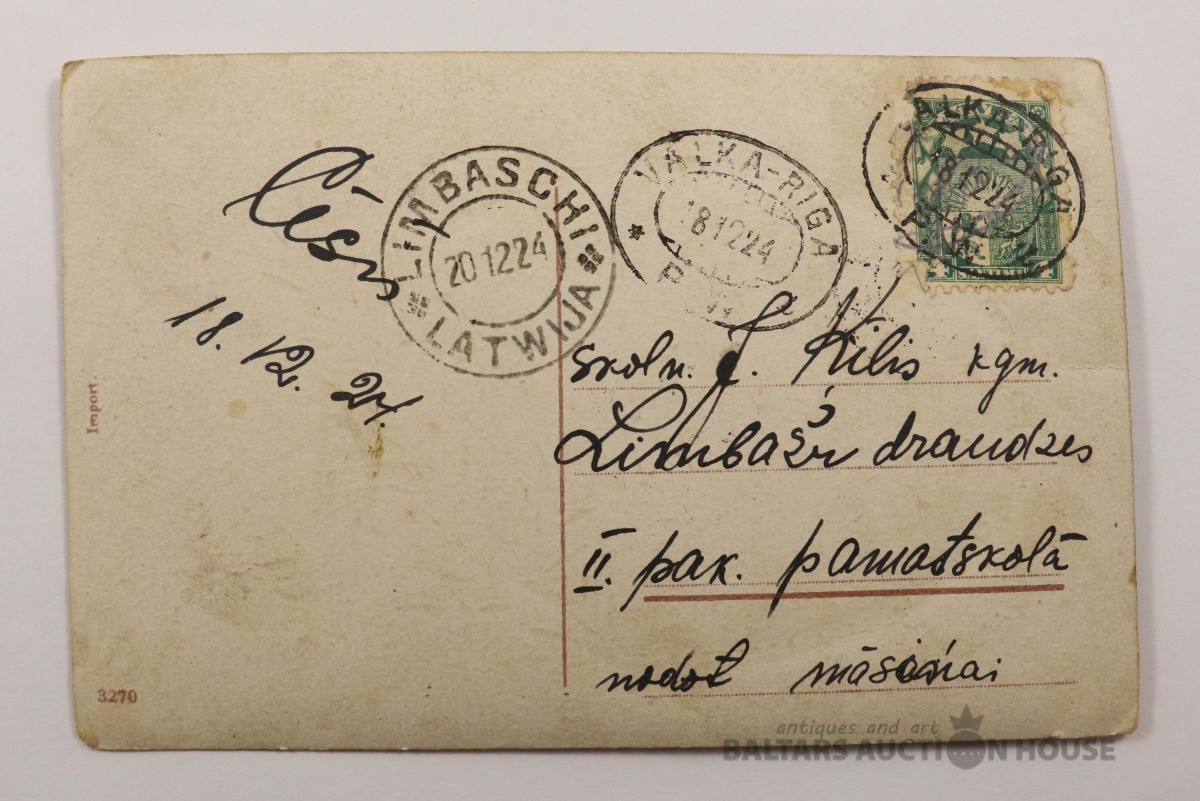 Cēsīs
18. 12. 24.
LIMBASCHI
20 12 24
LATWIJA
VALKA-RIGA
18 12 24
VALKA-RIGA
18 12 24
skoln. Ķilis kgm.
Limbažu draudzes
II. pak. pamatskolā
nodot māsiņai
Import.
3270
antiques and art
BALTARS AUCTION HOUSE